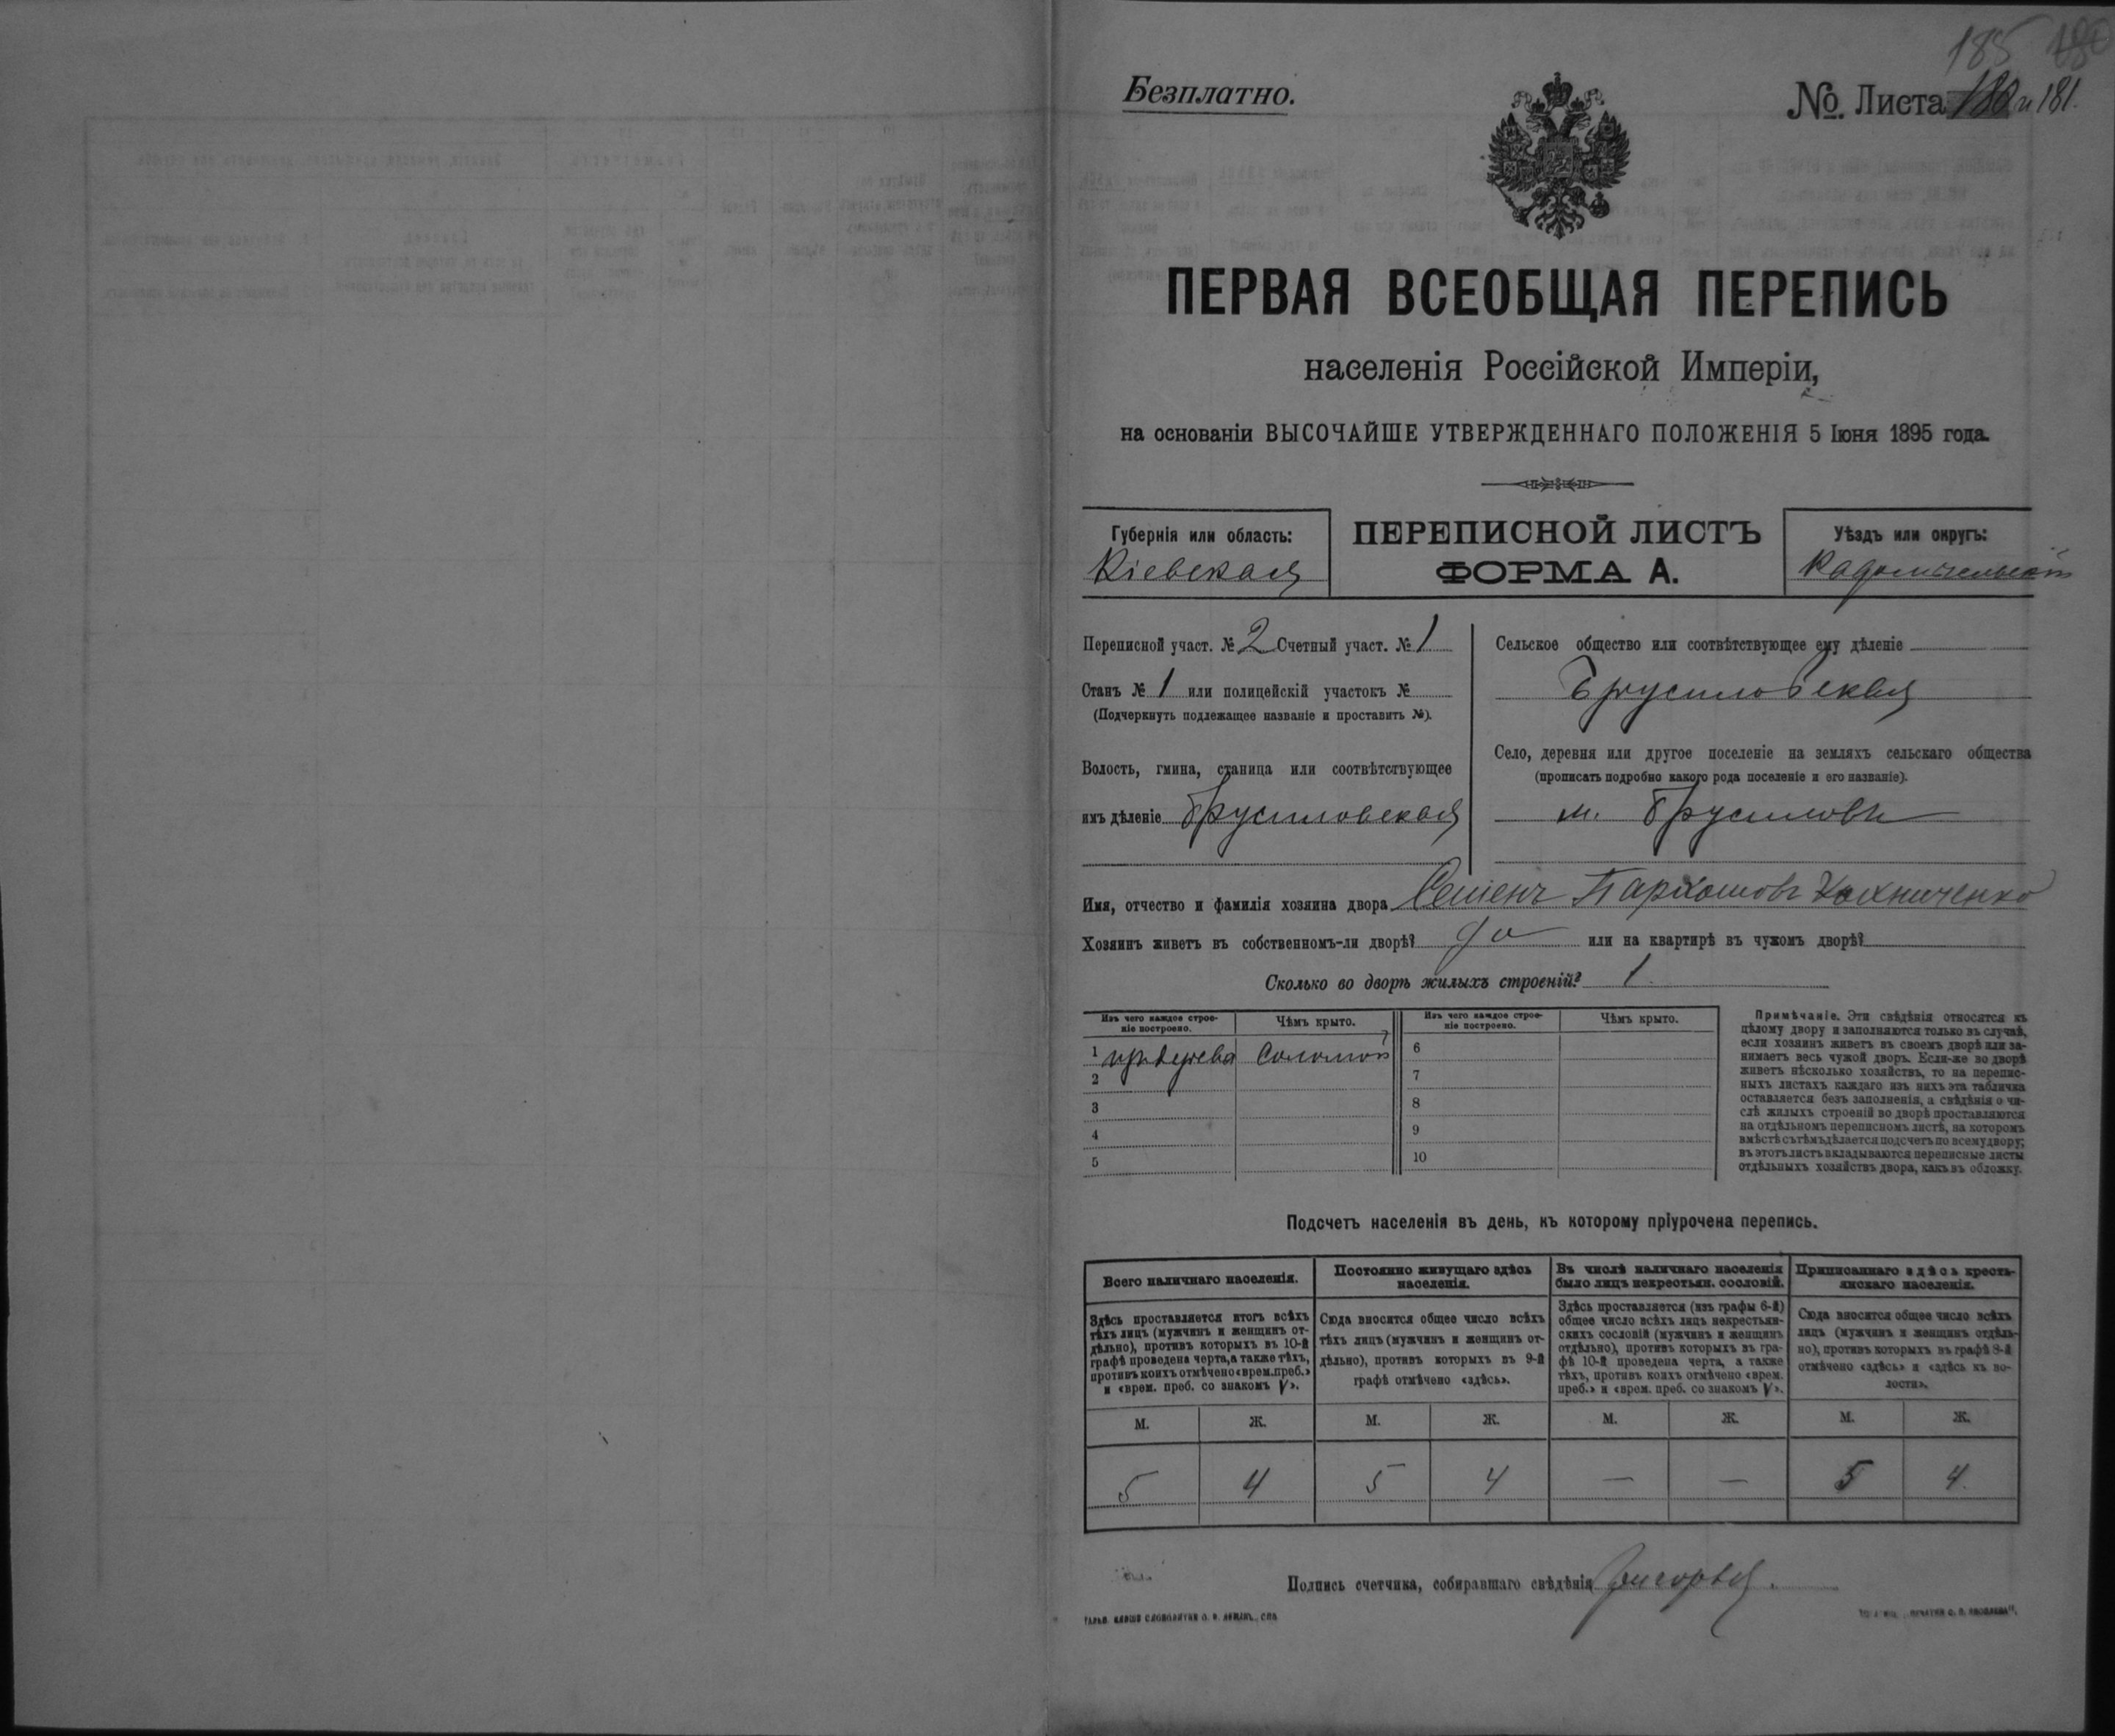 185
Безплатно.
№ Листа 180 и 181.
ПЕРВАЯ ВСЕОБЩАЯ ПЕРЕПИСЬ
населенія Россійской Имперіи,
на основаніи ВЫСОЧАЙШЕ УТВЕРЖДЕННАГО ПОЛОЖЕНІЯ 5 Іюня 1895 года.
Губернія или область:
Кіевская
ПЕРЕПИСНОЙ ЛИСТЪ
ФОРМА А.
Уѣздъ или округъ:
Радомысльскій
Переписной участ. № 2 Счетный участ. № 1
Станъ № 1 или полицейскій участокъ №
(Подчеркнуть подлежащее названіе и проставить №).
Волость, гмина, станица или соотвѣтствующее
имъ дѣленіе Брусиловская
Сельское общество или соотвѣтствующее ему дѣленіе
Брусиловская
Село, деревня или другое поселеніе на земляхъ сельскаго общества
(прописать подробно какого рода поселеніе и его названіе).
м. Брусиловъ
Имя, отчество и фамилія хозяина двора Семенъ Пархомовъ
Хозяинъ живетъ въ собственномъ-ли дворѣ? да или на квартирѣ въ чужомъ дворѣ?
Сколько во дворѣ жилыхъ строеній? 1.
Изъ чего каждое строе-
ніе построено.
Чѣмъ крыто.
Изъ чего каждое строе-
ніе построено.
Чѣмъ крыто.
1 изъ дерева Соломой
2
3
4
5
6
7
8
9
10
Примѣчаніе. Эти свѣдѣнія относятся къ
цѣлому двору и заполняются только въ случаѣ,
если хозяинъ живетъ въ своемъ дворѣ или за-
нимаетъ весь чужой дворъ. Если-же во дворѣ
живетъ нѣсколько хозяйствъ, то на перепис-
ныхъ листахъ каждаго изъ нихъ эта табличка
оставляется безъ заполненія, а свѣдѣнія о чи-
слѣ жилыхъ строеній во дворѣ проставляются
на отдѣльномъ переписномъ листѣ, на которомъ
вмѣстѣ съ тѣмъ дѣлается подсчетъ по всему двору;
въ этотъ листъ вкладываются переписные листы
отдѣльныхъ хозяйствъ двора, какъ въ обложку.
Подсчетъ населенія въ день, къ которому пріурочена перепись.
Всего наличнаго населенія.
Здѣсь проставляется итогъ всѣхъ
тѣхъ лицъ (мужчинъ и женщинъ от-
дѣльно), противъ которыхъ въ 10-й
графѣ проведена черта, а также тѣхъ,
противъ коихъ отмѣчено «врем. преб.»
и «врем. преб. со знакомъ V».
Постоянно живущаго здѣсь
населенія.
Сюда вносится общее число всѣхъ
тѣхъ лицъ (мужчинъ и женщинъ от-
дѣльно), противъ которыхъ въ 9-й
графѣ отмѣчено «здѣсь».
Въ числѣ наличнаго населенія
было лицъ некрестьян. сословій.
Здѣсь проставляется (изъ графы 6-й)
общее число всѣхъ лицъ некрестьян-
скихъ сословій (мужчинъ и женщинъ
отдѣльно), противъ которыхъ въ гра-
фѣ 10-й проведена черта, а также
тѣхъ, противъ коихъ отмѣчено «врем.
преб.» и «врем. преб. со знакомъ V».
Приписаннаго здѣсь кресть-
янскаго населенія.
Сюда вносится общее число всѣхъ
лицъ (мужчинъ и женщинъ отдѣль-
но), противъ которыхъ въ графѣ 8-й
отмѣчено «здѣсь» и «здѣсь къ во-
лости».
М. Ж. М. Ж. М. Ж. М. Ж.
5 4 5 4 — — 5 4.
Подпись счетчика, собиравшаго свѣдѣнія